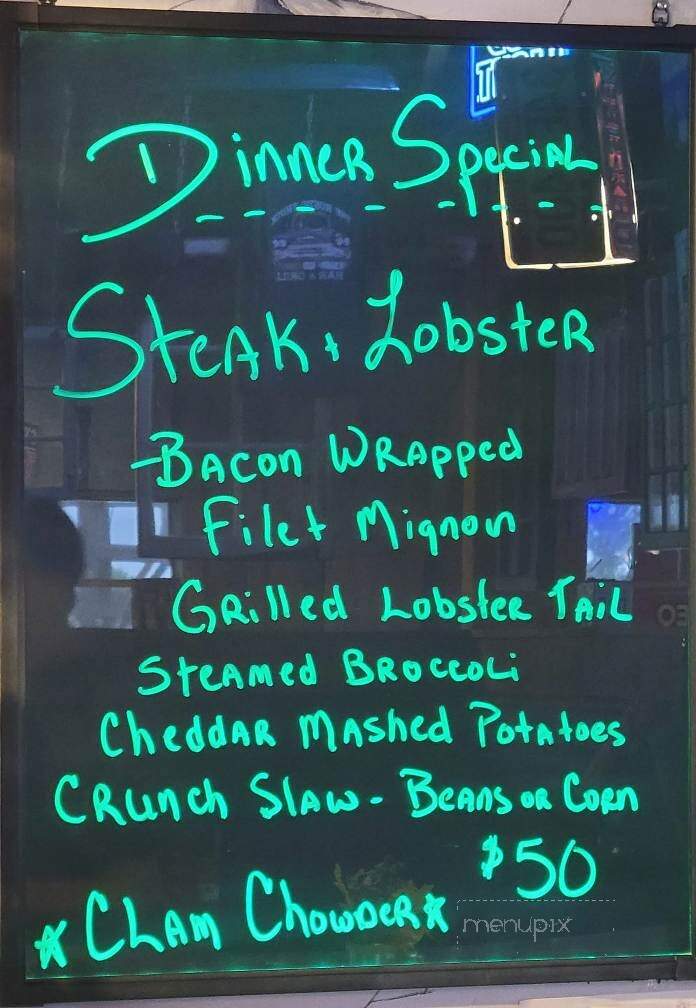 Dinner Special
Steak + Lobster
-Bacon Wrapped
Filet Mignon
Grilled Lobster Tail
Steamed Broccoli
Cheddar Mashed Potatoes
Crunch Slaw - Beans or Corn
$50
*Clam Chowder*
menupix